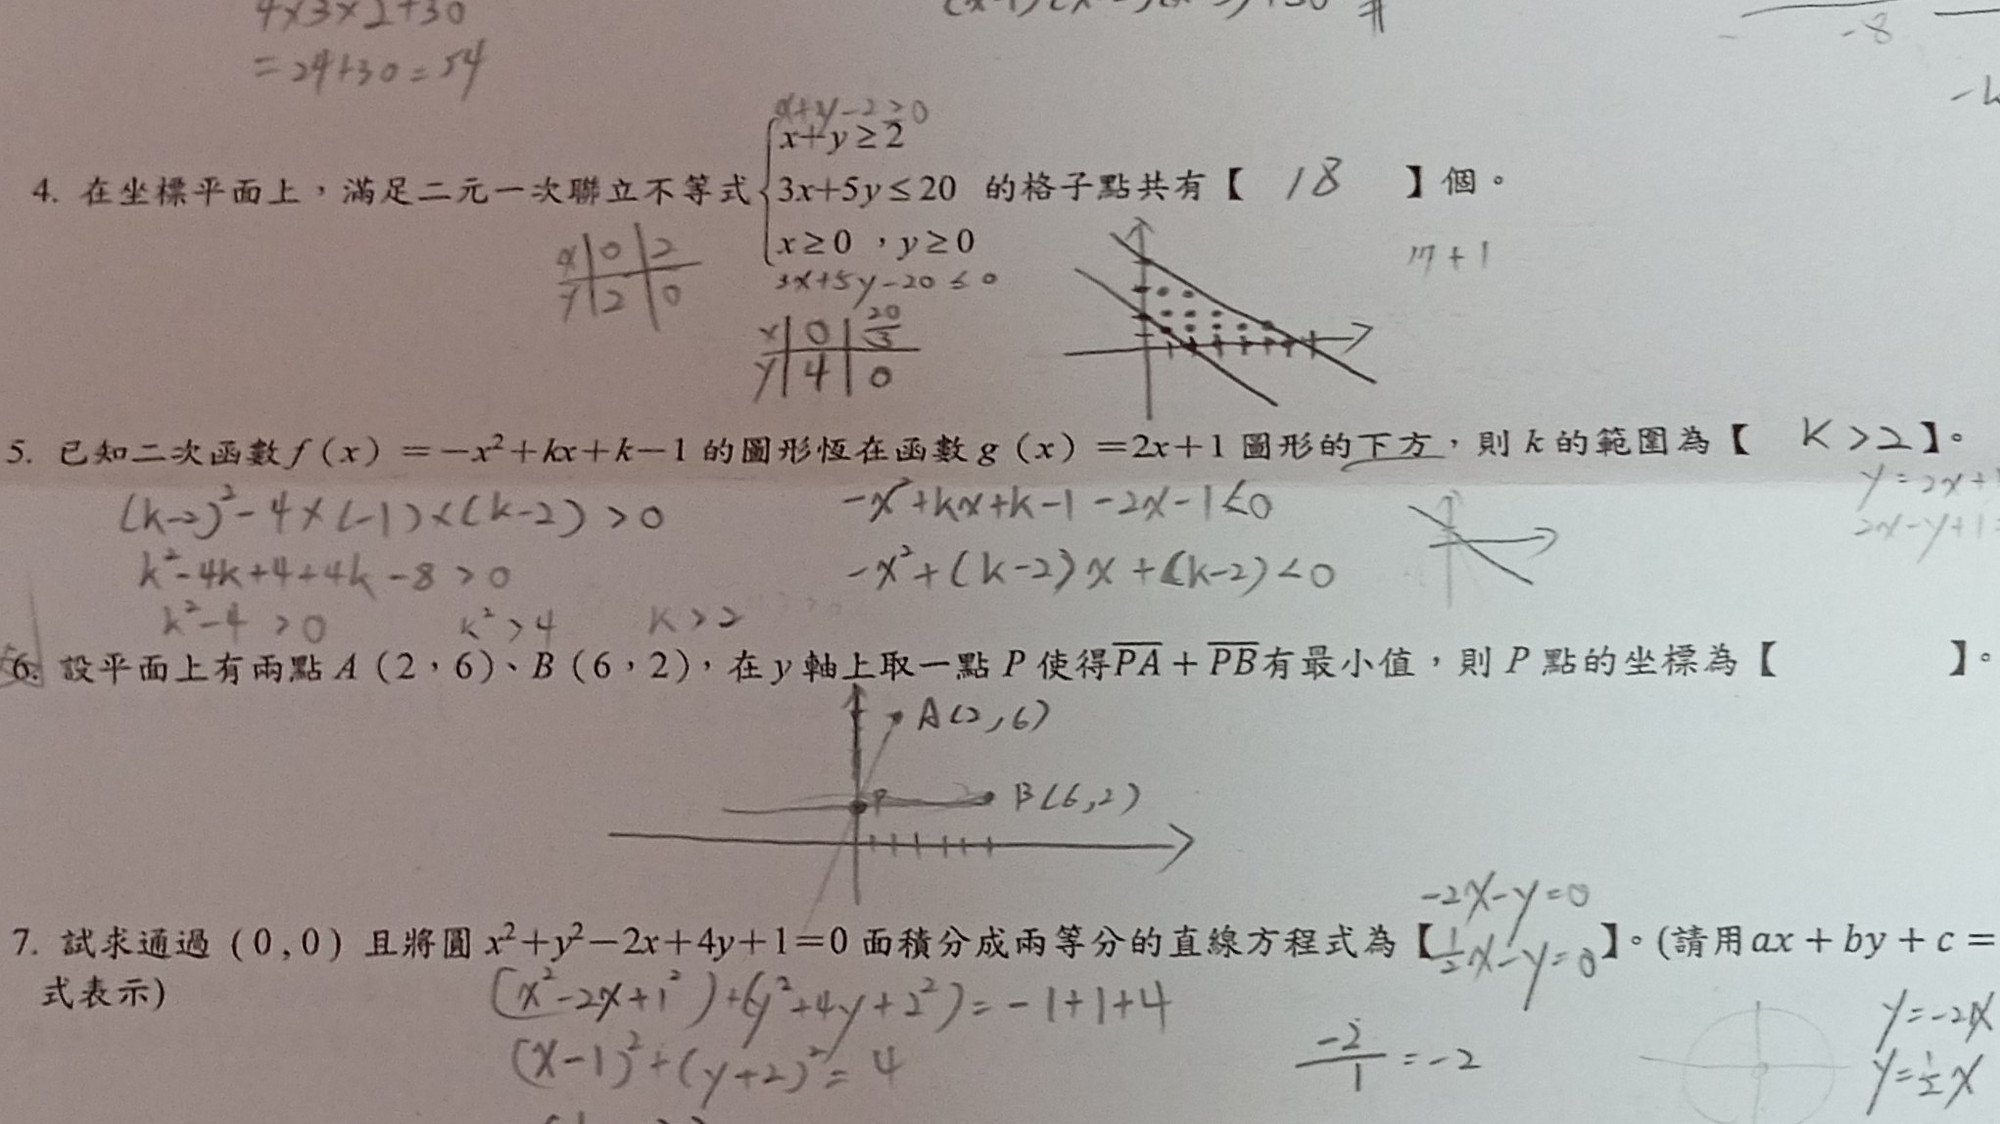 4×3×2+30
=24+30=54
x+y-2≥0
4. 在坐標平面上，滿足二元一次聯立不等式 { x+y≥2
3x+5y≤20 的格子點共有【 18 】個。
x≥0 ，y≥0
17+1
3x+5y-20≤0
x 0 2
y 2 0
x 0 20/3
y 4 0
5. 已知二次函數 f（x）=-x²+kx+k-1 的圖形恆在函數 g（x）=2x+1 圖形的下方，則 k 的範圍為【 K>2 】。
(k-2)²-4×(-1)×(k-2)>0
-x²+kx+k-1-2x-1<0
y=2x+1
2x-y+1=
k²-4k+4+4k-8>0
-x²+(k-2)x+(k-2)<0
k²-4>0 k²>4 k>2
6. 設平面上有兩點 A（2，6）、B（6，2），在 y 軸上取一點 P 使得 PA + PB 有最小值，則 P 點的坐標為【 】。
A(2,6)
P
B(6,2)
-2x-y=0
7. 試求通過（0,0）且將圓 x²+y²-2x+4y+1=0 面積分成兩等分的直線方程式為【 1/2x-y=0 】。(請用 ax+by+c=
式表示)
(x²-2x+1²)+(y²+4y+2²)=-1+1+4
(x-1)²+(y+2)²=4
-2/1=-2
y=-2x
y=1/2x